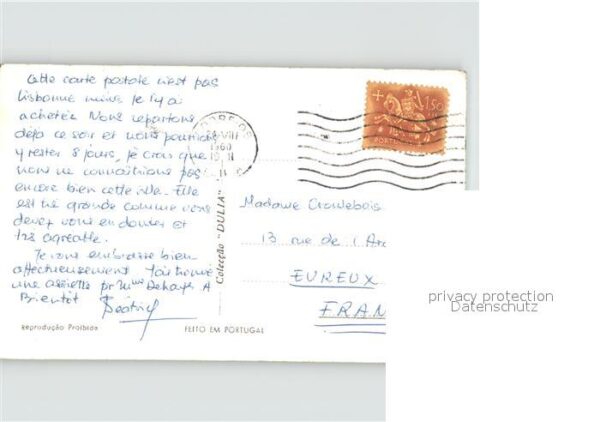 Cette carte postale n'est pas
Lisbonne mais je l'y ai
achetée. Nous repartons
déjà ce soir et nous pourrions
y rester 8 jours, je crois que
nous ne connaîtrions pas
encore bien cette ville. Elle
est très grande comme vous
devez vous en douter et
très agréable.
Je vous embrasse bien
affectueusement. J'ai trouvé
une assiette pr Mme Dehays A
Bientôt Béatrice
Reprodução Proibida
FEITO EM PORTUGAL
Colecção "DULIA"
VIII
1960
1$50
Madame
13 rue de l'
EVREUX
FRAN
privacy protection
Datenschutz